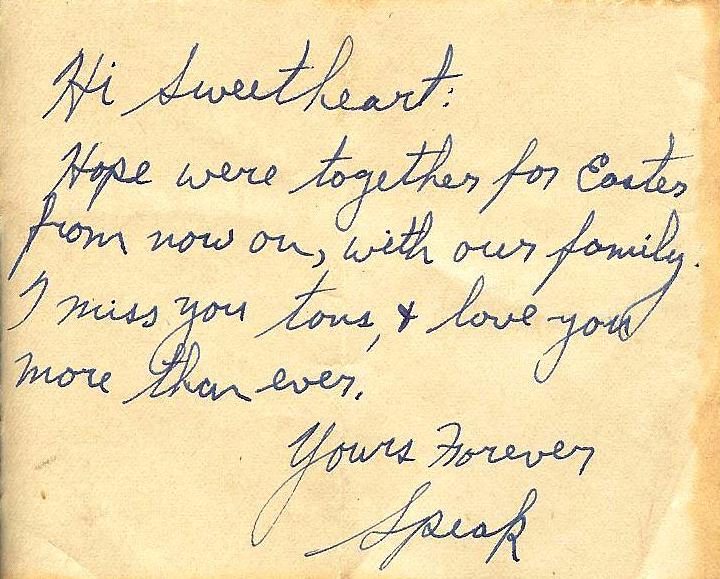 Hi Sweetheart:
Hope were together for Easter
from now on, with our family.
I miss you tons, & love you
more than ever.
Yours Forever
Speak